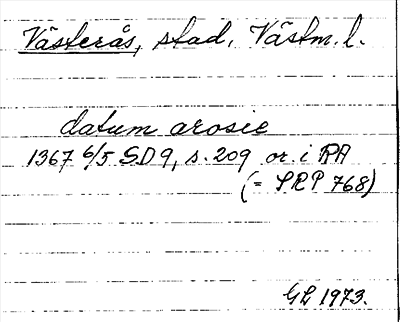 Västerås, stad, Västm. l.
datum arosie
1367 6/5 SD 9, s. 209 or. i RA
(= SRP 768)
GL 1973.